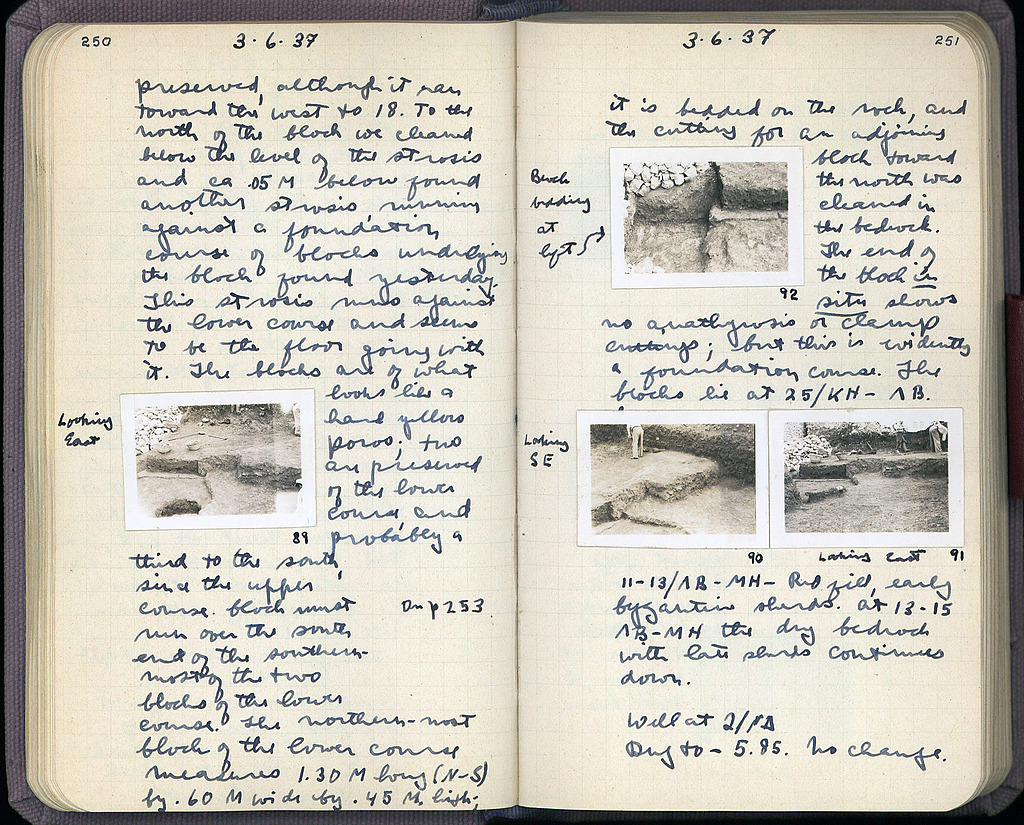 250
3.6.37
preserved, although it ran
toward the west to 18. To the
north of the block we cleaned
below the level of the strosis
and ca .05 M below found
another strosis running
against a foundation
course of blocks underlying
the block found yesterday.
This strosis runs against
the lower course and seems
to be the floor going with
it. The blocks are of what
looks like a
hard yellow
poros; two
are preserved
of the lower
course and
probably a
Looking
East
89
third to the south,
since the upper
course block must
run over the south
end of the southern-
most of the two
blocks of the lower
course. The northern-most
block of the lower course
measures 1.30 M long (N-S)
by .60 M wide by .45 M high;
p 253
3.6.37
251
it is bedded on the rock, and
the cutting for an adjoining
block toward
the north was
cleaned in
the bedrock.
The end of
the block in
situ shows
Block
bedding
at
left
92
no anathyrosis or clamp
cuttings; but this is evidently
a foundation course. The
blocks lie at 25/KH-ΛB.
Looking
SE
90
Looking East
91
11-13/ΛB-MH- Red fill, early
byzantine sherds. At 13-15
ΛB-MH the dry bedrock
with late sherds continues
down.
Well at 2/ΛΔ
Dug to - 5.85. No change.